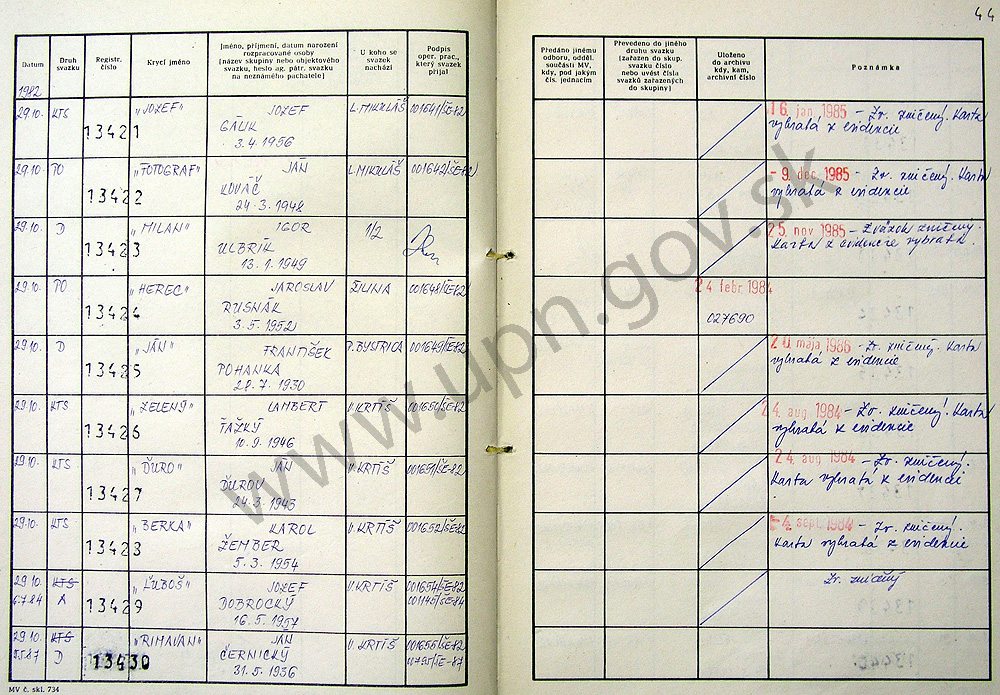 44
Datum
Druh svazku
Registr. číslo
Krycí jméno
Jméno, příjmení, datum narození
rozpracované osoby
(název skupiny nebo objektového
svazku, heslo ag. pátr. svazku
na neznámého pachatele)
U koho se
svazek
nachází
Podpis
oper. prac.,
který svazek
přijal
Předáno jinému
odboru, odděl.
součásti MV,
kdy, pod jakým
čís. jednacím
Převedeno do jiného
druhu svazku
(zařazen do skup.
svazku číslo
nebo uvést čísla
svazků zařazených
do skupiny)
Uloženo
do archivu
kdy, kam,
archivní číslo
Poznámka
1982
29.10. KTS 13421 „JOZEF" JOZEF L. MIKULÁŠ 001641/ŠE-82
GÁLIK
3.4.1956
16. jan. 1985 – Zv. zničený. Karta
vybratá z evidencie
29.10. PO 13422 „FOTOGRAF" JÁN L. MIKULÁŠ 001642/ŠE-82
KOVÁČ
24.3.1948
- 9. dec. 1985 – Zv. zničený. Karta
vybratá z evidencie
29.10. D 13423 „MILAN" IGOR 1/2
ULBRÍK
13.1.1949
25. nov 1985 – Zväzok zničený.
Karta z evidencie vybratá.
29.10. PO 13424 „HEREC" JAROSLAV ŽILINA 001648/ŠE-82
RUSNÁK
3.5.1952
24 febr 1984
027690
29.10. D 13425 „JÁN" FRANTIŠEK P. BYSTRICA 001649/ŠE-82
POHANKA
28.7.1930
20. mája 1986 – Zv. zničený. Karta
vybratá z evidencie
29.10. KTS 13426 „ZELENÝ" LAMBERT V. KRTÍŠ 001650/ŠE-82
ŤAŽKÝ
10.9.1946
24. aug 1984 – Zv. zničený. Karta
vybratá z evidencie
29.10. KTS 13427 „ĎURO" JÁN V. KRTÍŠ 001651/ŠE-82
ĎUROV
24.3.1943
24. aug 1984 – Zv. zničený.
Karta vybratá z evidencie
29.10. KTS 13428 „BERKA" KAROL V. KRTÍŠ 001652/ŠE-82
ŽEMBER
5.3.1954
- 4. sept. 1984 – Zv. zničený.
Karta vybratá z evidencie
29.10. KTS 13429 „ĽUBOŠ" JOZEF V. KRTÍŠ 001654/ŠE-82
6.7.84 A DOBROCKÝ 001145/ŠE-84
16.5.1957
Zv. zničený
29.10. KTS 13430 „RIMAVAN" JÁN V. KRTÍŠ 001655/ŠE-82
D ČERNICKÝ
31.5.1936
MV č. skl. 734
www.upn.gov.sk